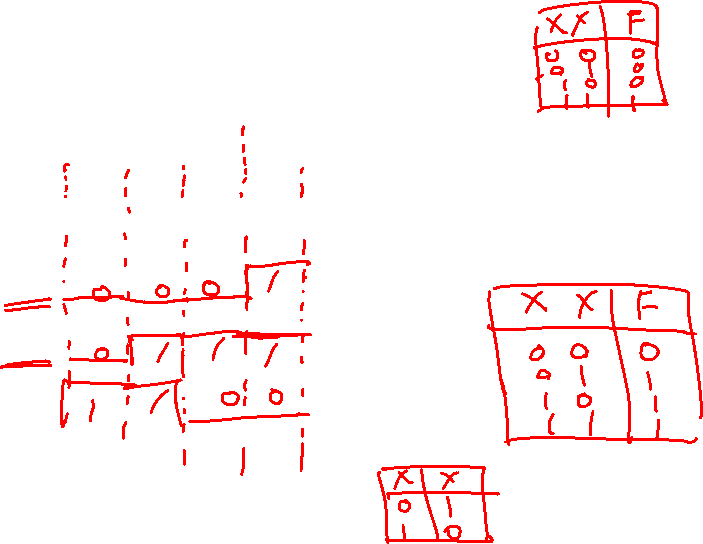 X X F
0 0 0
0 1 0
1 0 0
1 1 1
0 0 0 1
0 1 1 1
1 1 0 0
X X F
0 0 0
0 1 1
1 0 1
1 1 1
X X
0 1
1 0